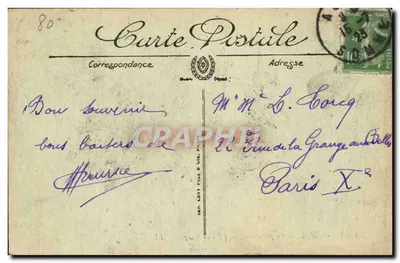 80
Carte Postale
Correspondance
Adresse
Bon souvenir
bons baisers de
Maurice
Mr Me L. Torcq
22 Rue de la Grange aux Belles
Paris Xe
CPARAMA